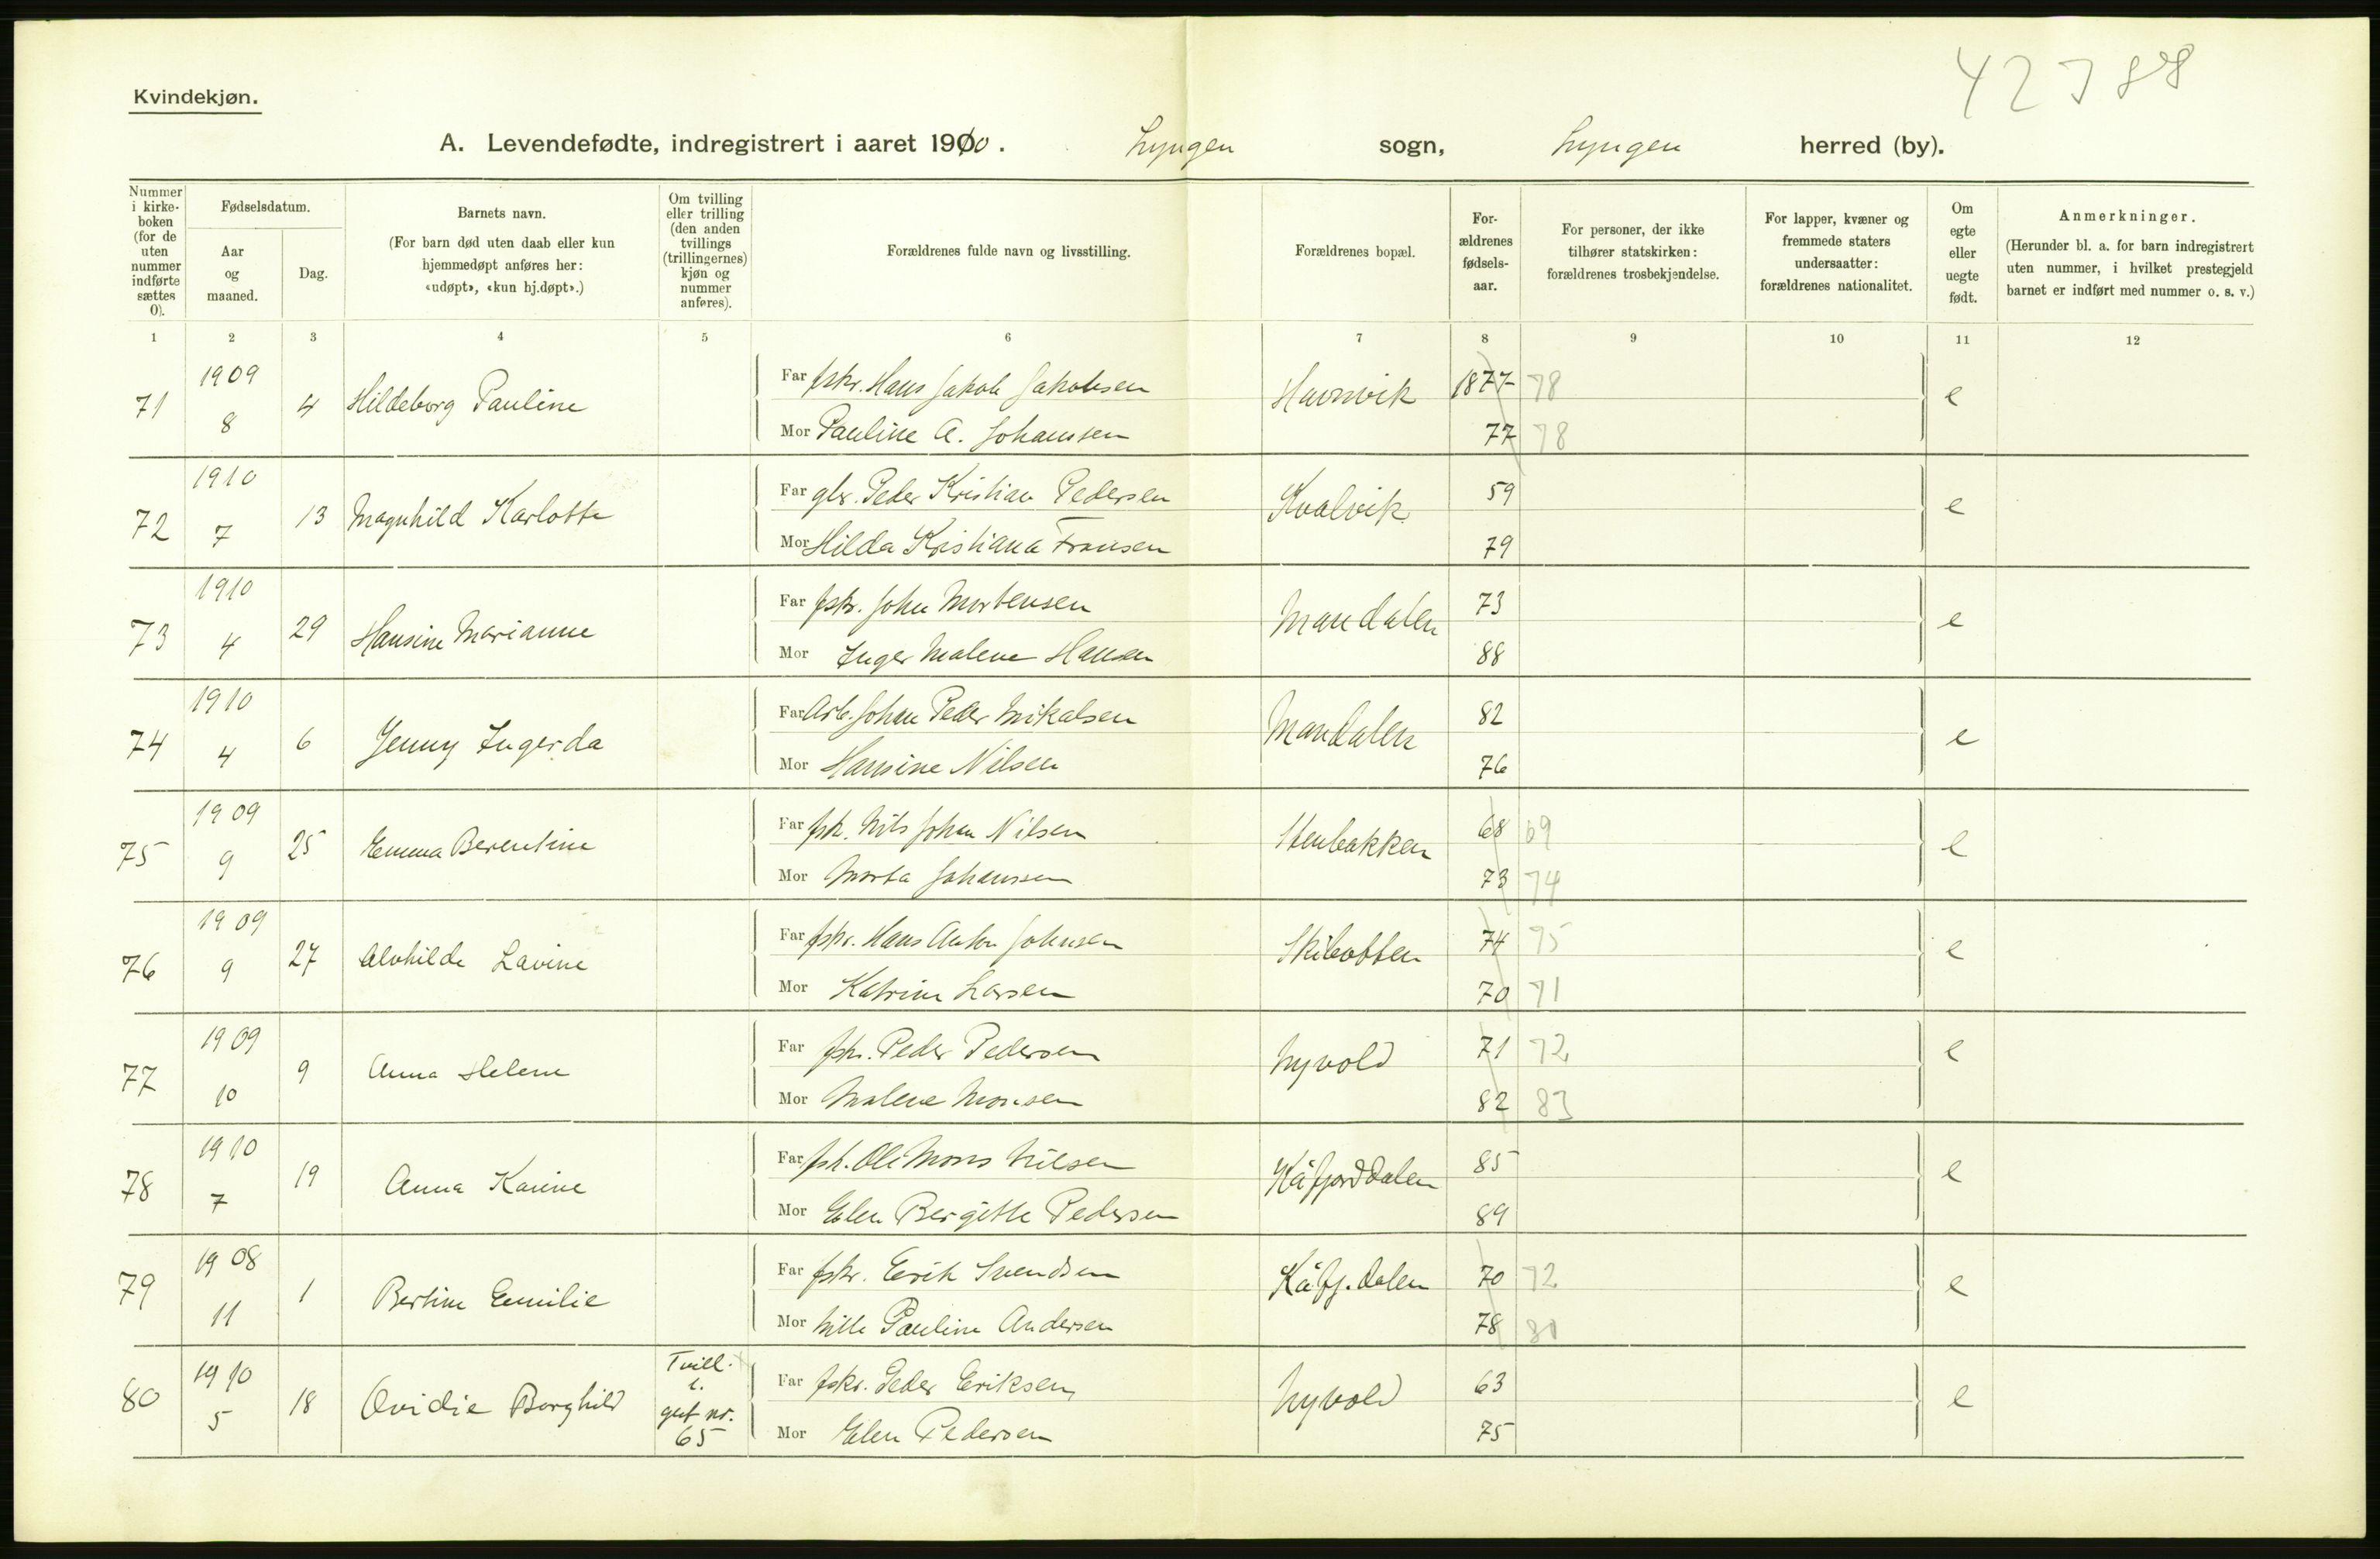 42788
Kvindekjøn.
A. Levendefødte, indregistrert i aaret 1910. Lyngen sogn, Lyngen herred (by).
Nummer i kirke-boken (for de uten nummer indførte sættes 0).
Fødselsdatum.
Aar og maaned.
Dag.
Barnets navn.
(For barn død uten daab eller kun hjemmedøpt anføres her: «udøpt», «kun hj.døpt».)
Om tvilling eller trilling (den anden tvillings (trillingernes) kjøn og nummer anføres).
Forældrenes fulde navn og livsstilling.
Forældrenes bopæl.
For-ældrenes fødsels-aar.
For personer, der ikke tilhører statskirken: forældrenes trosbekjendelse.
For lapper, kvæner og fremmede staters undersaatter: forældrenes nationalitet.
Om egte eller uegte født.
Anmerkninger.
(Herunder bl. a. for barn indregistrert uten nummer, i hvilket prestegjeld barnet er indført med nummer o. s. v.)
1 2 3 4 5 6 7 8 9 10 11 12
71 1909 8 4 Hildeborg Pauline Far fskr. Hans Jakob Jakobsen Havnvik 1877 78 e
Mor Pauline A. Johansen 77 78
72 1910 7 13 Magnhild Karlotte Far gbr. Peder Kristian Pedersen Kvalvik 59 e
Mor Hilda Kristiana Fransen 79
73 1910 4 29 Hansine Marianne Far fskr. John Mortensen Mandalen 73 e
Mor Inger Malene Hansen 88
74 1910 4 6 Jenny Ingerda Far Arb. Johan Peder Mikalsen Mandalen 82 e
Mor Hansine Nilsen 76
75 1909 9 25 Emma Berentine Far fsk. Nils Johan Nilsen Stenbakken 68 69 e
Mor Marta Johansen 73 74
76 1909 9 27 Alvhilde Lavine Far fskr. Hans Anton Johnsen Skibotten 74 75 e
Mor Katrine Larsen 70 71
77 1909 10 9 Anna Helene Far fskr. Peder Pedersen Nyvold 71 72 e
Mor Malene Monsen 82 83
78 1910 7 19 Anna Karine Far fsk. Ole Mons Nilsen Kåfjorddalen 85 e
Mor Elen Bergitte Pedersen 89
79 1908 11 1 Bertine Emilie Far fskr. Erik Svendsen Kåfj.dalen 70 72 e
Mor Nille Pauline Andersen 78 80
80 1910 5 18 Ovidie Borghild Tvill. t. gut nr. 65 Far fskr. Peder Eriksen Nyvold 63 e
Mor Elen Pedersen 75